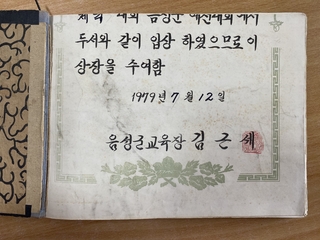 대회 음성군 예선대회에서
두서와 같이 입상 하였으므로 이
상장을 수여함
1979년 7월 12일
음성군교육장 김근세